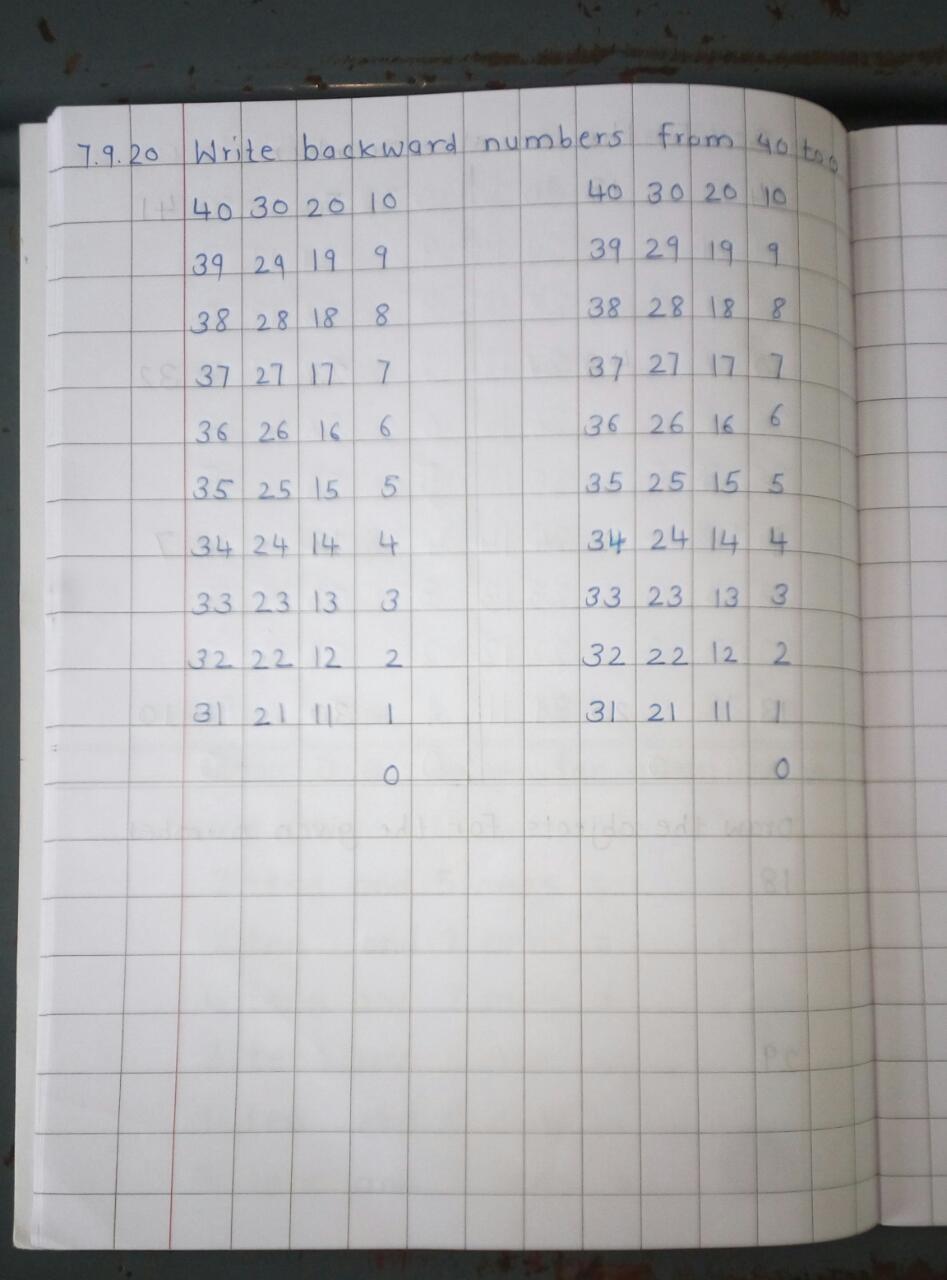 7.9.20 Write backward numbers from 40 to 0
40 30 20 10 40 30 20 10
39 29 19 9 39 29 19 9
38 28 18 8 38 28 18 8
37 27 17 7 37 27 17 7
36 26 16 6 36 26 16 6
35 25 15 5 35 25 15 5
34 24 14 4 34 24 14 4
33 23 13 3 33 23 13 3
32 22 12 2 32 22 12 2
31 21 11 1 31 21 11 1
0 0